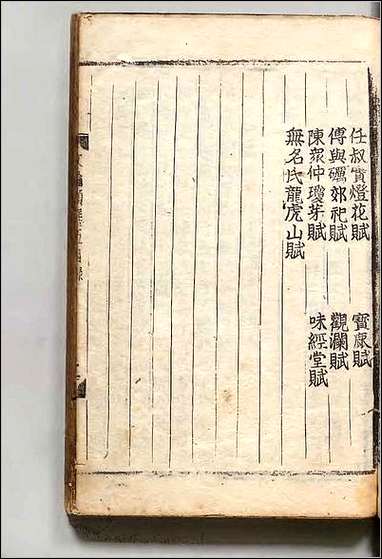 任叔實燈花賦 寶康賦
傅與礪郊祀賦 觀瀾賦
陳衆仲瓊芽賦 味經堂賦
無名氏龍虎山賦